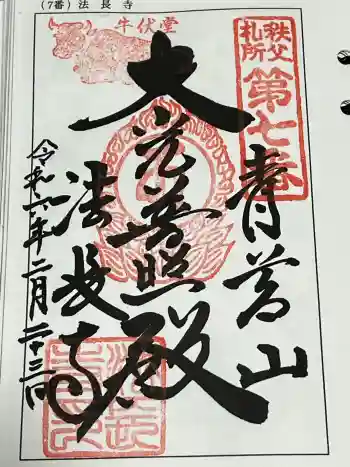 (7番) 法 長 寺
牛伏堂
秩父
札所
第七番
青苔山
大光普照殿
法長寺
令和六年二月二十三日